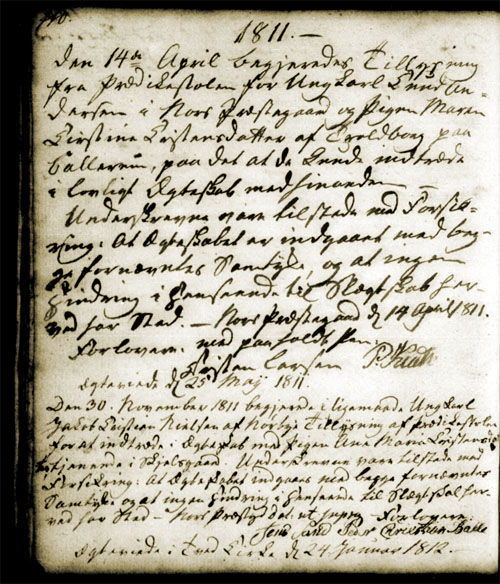 1811. —
Den 14de April begjeredes Tillysning
fra Prædikestolen for Ungkarl Knud An-
dersen i Nors Præstegaard og Pigen Maren
Kirstine Cristensdatter af Troldborg paa
Ballerum, paa det at de kunde indtræde
i lovligt Ægteskab med hinanden —
Underskrevne vare tilstede med Forsik-
ring: At Ægteskabet er indgaaet med beg-
ge fornævntes Samtykke, og at ingen
Hindring i Henseende til Slægtskab her-
ved har Sted. — Nors Præstegaard d 14 April 1811.
Forlovere: med paaholdt Pen
Cristen Larsen
Ægteviede d 25 Maj 1811.
Den 30. November 1811 begjerede ligemaade Ungkarl
Jakob Cristian Nielsen af Nørbye Tillysning af Prædikestolen
for at indtræde i Ægteskab med Pigen Ane Marie Cristensd:
tjenende i Skjelsgaard. Underskrevne vare tilstede med
Forsikring: At Ægteskabet indgaaes med begge fornævntes
Samtykke og at ingen Hindring i Henseende til Slægtskab her-
ved har Sted. Nors Præstegd. dat. ut supra. Forlovere:
Jens
Ægteviede i Tved Kirke d 24 Januar 1812.